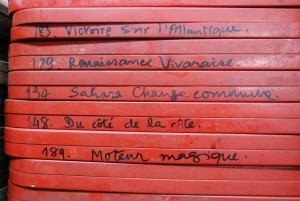 183. Victoire sur l'Atlantique.
179. Renaissance Vivaraise.
139. Sahara Champs communs.
148. Du côté de la côte.
189. Moteur magique.